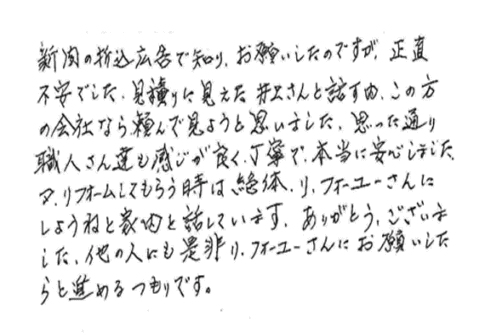 新聞の折込広告で知り、お願いしたのですが、正直
不安でした、見積りに見えた井上さんと話す内、この方
の会社なら頼んで見ようと思いました、思った通り
職人さん達も感じが良く、丁寧で、本当に安心しました、
又、リフォームしてもらう時は絶体、リ、フォーユーさんに
しようねと家内と話しています、ありがとう、ございま
した、他の人にも是非リ、フォーユーさんにお願いした
らと進めるつもりです。